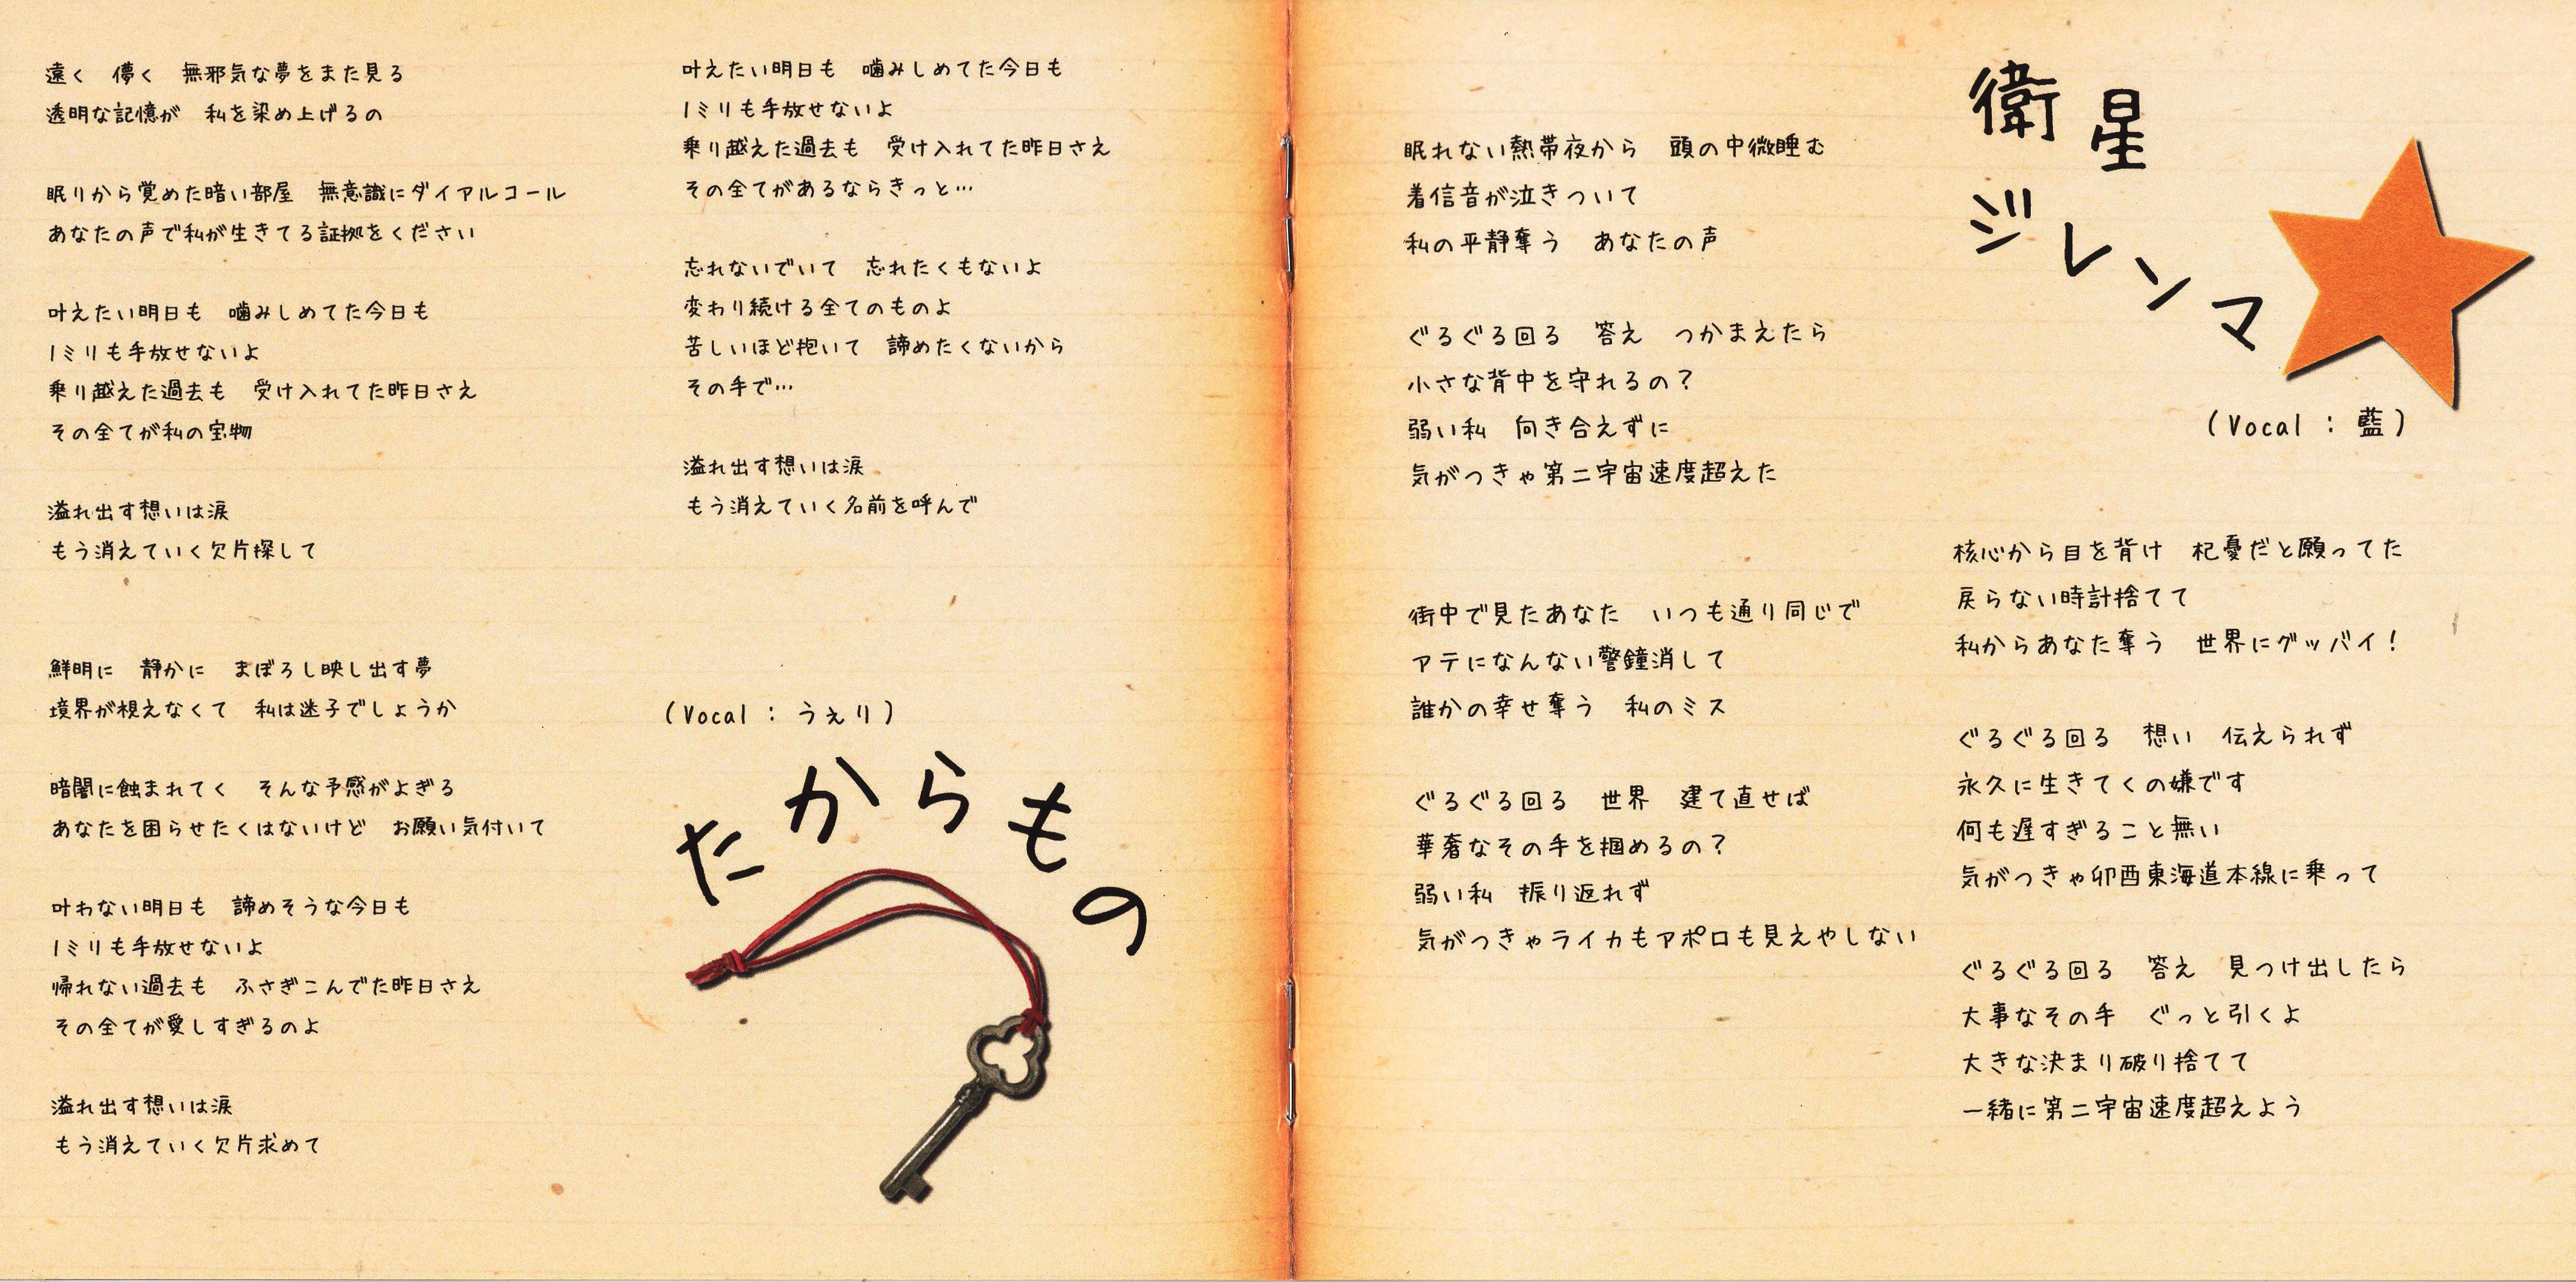 遠く　儚く　無邪気な夢をまた見る
透明な記憶が　私を染め上げるの
眠りから覚めた暗い部屋　無意識にダイアルコール
あなたの声で私が生きてる証拠をください
叶えたい明日も　噛みしめてた今日も
1ミリも手放せないよ
乗り越えた過去も　受け入れてた昨日さえ
その全てが私の宝物
溢れ出す想いは涙
もう消えていく欠片探して
鮮明に　静かに　まぼろし映し出す夢
境界が視えなくて　私は迷子でしょうか
暗闇に蝕まれてく　そんな予感がよぎる
あなたを困らせたくはないけど　お願い気付いて
叶わない明日も　諦めそうな今日も
1ミリも手放せないよ
帰れない過去も　ふさぎこんでた昨日さえ
その全てが愛しすぎるのよ
溢れ出す想いは涙
もう消えていく欠片求めて
叶えたい明日も　噛みしめてた今日も
1ミリも手放せないよ
乗り越えた過去も　受け入れてた昨日さえ
その全てがあるならきっと…
忘れないでいて　忘れたくもないよ
変わり続ける全てのものよ
苦しいほど抱いて　諦めたくないから
その手で…
溢れ出す想いは涙
もう消えていく名前を呼んで
(Vocal : うぇり)
たからもの
衛星
ジレンマ
(Vocal : 藍)
眠れない熱帯夜から　頭の中微睡む
着信音が泣きついて
私の平静奪う　あなたの声
ぐるぐる回る　答え　つかまえたら
小さな背中を守れるの？
弱い私　向き合えずに
気がつきゃ第二宇宙速度超えた
街中で見たあなた　いつも通り同じで
アテになんない警鐘消して
誰かの幸せ奪う　私のミス
ぐるぐる回る　世界　建て直せば
華奢なその手を掴めるの？
弱い私　振り返れず
気がつきゃライカもアポロも見えやしない
核心から目を背け　杞憂だと願ってた
戻らない時計捨てて
私からあなた奪う　世界にグッバイ！
ぐるぐる回る　想い　伝えられず
永久に生きてくの嫌です
何も遅すぎること無い
気がつきゃ卯酉東海道本線に乗って
ぐるぐる回る　答え　見つけ出したら
大事なその手　ぐっと引くよ
大きな決まり破り捨てて
一緒に第二宇宙速度超えよう